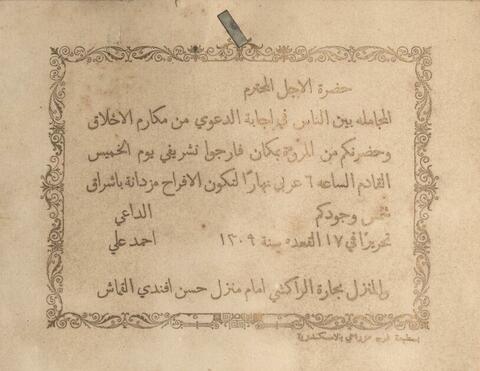 حضرة الاجل المحترم
المجامله بين الناس في اجابة الدعوي من مكارم الاخلاق
وحضرتكم من المروة بمكان فارجوا تشريفي يوم الخميس
القادم الساعه ٦ عربي نهارًا لتكون الافراح مزدانة باشراق
شمس وجودكم الداعي
تحريرًا في ١٧ القعده سنة ١٣٠٩ احمد علي
والمنزل بحارة الراكشي امام منزل حسن افندي القماش
بمطبعة فرج مزراحي بالاسكندرية